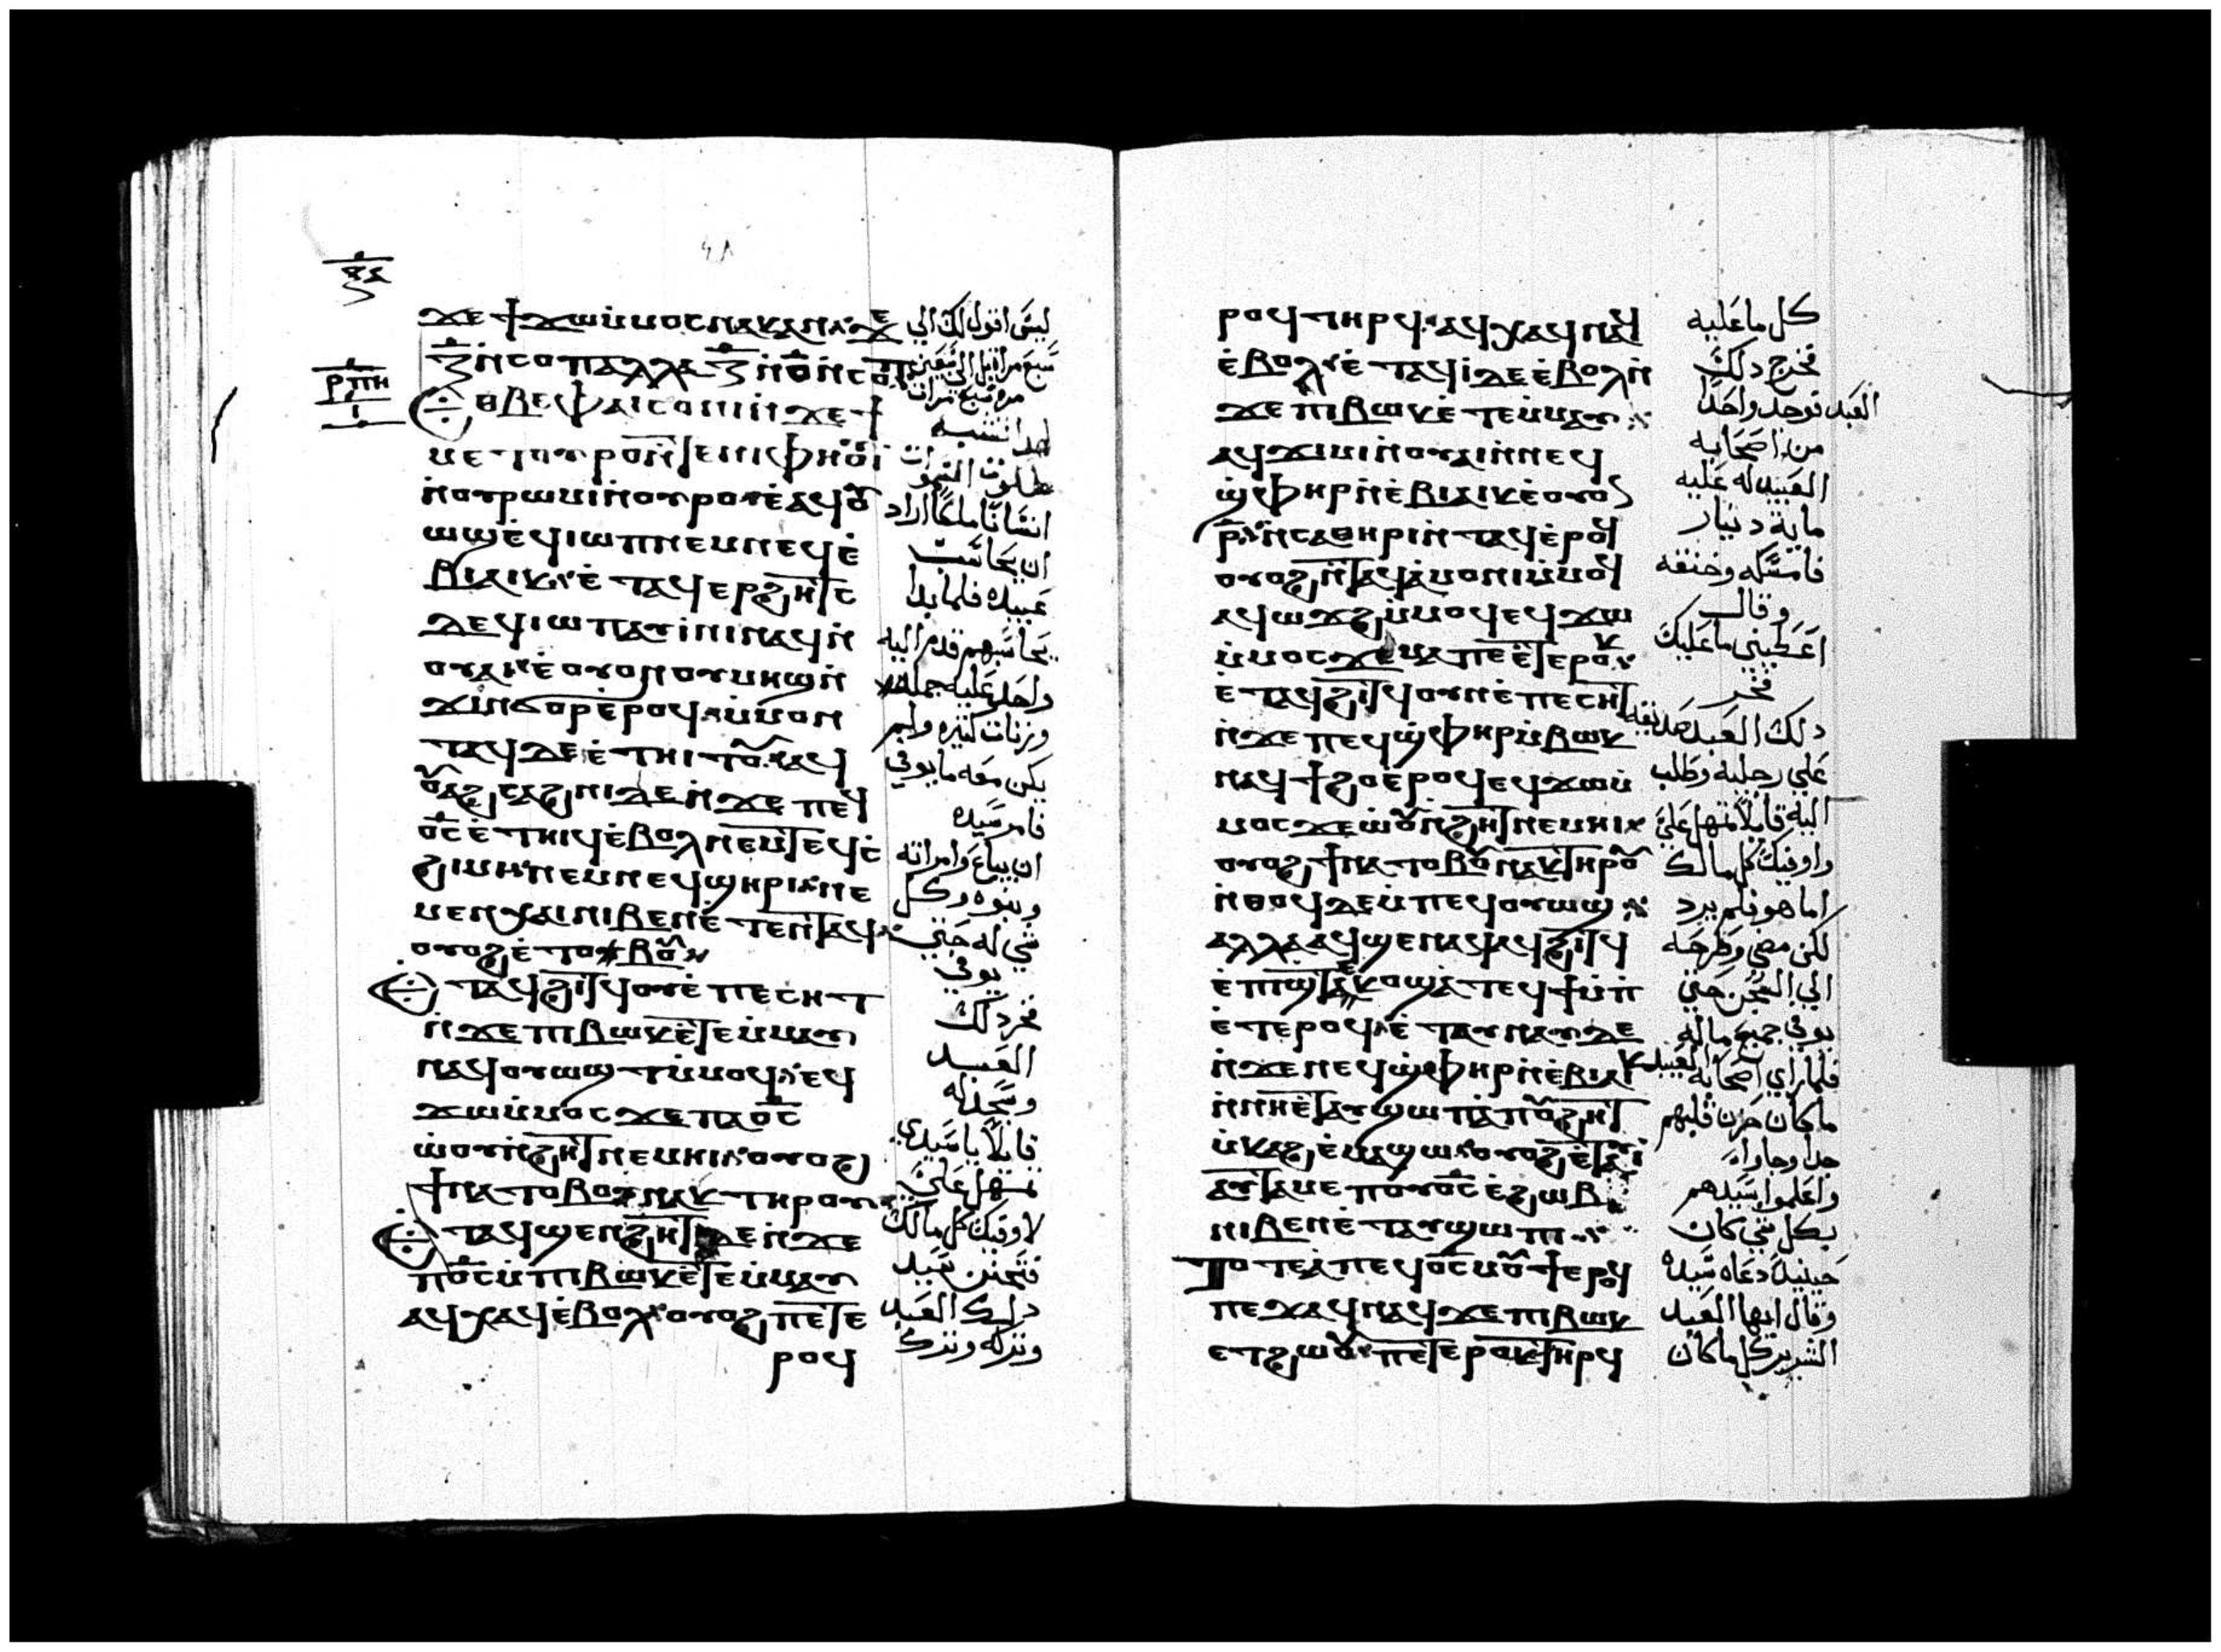 ϫⲉ ϯϫⲱ ⲙ̇ⲙⲟⲥ ⲛⲁⲕ ⲁⲛ
ⲍ̄ ⲛ̇ⲥⲟⲡ ⲁⲗⲗⲁ ⲍ̄ ⲛ̇ⲟ̄ ⲛ̇ⲥⲟⲡ
ⲑⲃⲉ ⲫⲁⲓ ⲥⲟⲛⲓ ⲛ̇ϫⲉ ϯ
ⲙⲉⲧⲟⲩⲣⲟ ⲛ̇ⲧⲉ ⲛⲓⲫⲏⲟⲩⲓ
ⲛ̇ⲟⲩⲣⲱⲙⲓ ⲛ̇ⲟⲩⲣⲟ ⲉ̇ⲁϥⲟⲩ
ⲱϣ ⲉ̇ϥⲓⲱⲡ ⲛⲉⲙ ⲛⲉϥⲉ̇
ⲃⲓⲁⲓⲕ ⲉ̇ⲧⲁϥⲉⲣϩⲏⲧⲥ
ⲇⲉ ϥⲓⲱⲡ ⲁⲩⲓ̇ⲛⲓ ⲛⲁϥ ⲛ̇
ⲟⲩⲁⲓ ⲉ̇ⲟⲩⲟⲛ ⲟⲩⲙⲏϣ ⲛ̇
ϫⲓⲛϭⲟⲣ ⲉ̇ⲣⲟϥ ⲙ̇ⲙⲟⲛ
ⲧⲁϥ ⲇⲉ ⲉ̇ⲧⲏⲓⲧⲟⲩ ⲁϥ
ⲟⲩⲁϩⲥⲁϩⲛⲓ ⲇⲉ ⲛ̇ϫⲉ ⲡⲉϥ
ⲟ̄ⲥ̄ ⲉ̇ⲧⲏⲓϥ ⲉ̇ⲃⲟⲗ ⲛⲉⲙ ⲧⲉϥⲥ̇
ϩⲓⲙⲓ ⲛⲉⲙ ⲛⲉϥϣⲏⲣⲓ ⲛⲉ
ⲙ ⲉⲛⲭⲁⲓ ⲛⲓⲃⲉⲛ ⲉ̇ⲧⲉⲛⲧⲁϥ
ⲟⲩⲟϩ ⲉ̇ⲧⲟⲃⲟⲩ
ⲧⲁϥϩⲓⲧϥ ⲟⲩⲛ ⲉ̇ⲡⲉⲥⲏⲧ
ⲛ̇ϫⲉ ⲡⲓⲃⲱⲕ ⲉ̇ⲧⲉⲙ̇ⲙⲁⲩ
ⲛⲁϥⲟⲩⲱϣⲧ ⲙ̇ⲙⲟϥ ⲉϥ
ϫⲱ ⲙ̇ⲙⲟⲥ ϫⲉ ⲡⲁⲟ̄ⲥ̄
ⲱ̇ⲟⲩⲛ̇ϩⲏⲧ ⲛⲉⲙⲏⲓ ⲟⲩⲟϩ
ϯⲛⲁⲧⲟⲃⲟⲩ ⲛⲁⲕ ⲧⲏⲣⲟⲩ
ⲧⲁϥϣⲉⲛϩⲏⲧ ⲇⲉ ⲛ̇ϫⲉ
ⲡⲟ̄ⲥ̄ ⲙ̇ⲡⲓⲃⲱⲕ ⲉ̇ⲧⲉⲙ̇ⲙⲁⲩ
ⲁϥⲭⲁϥ ⲉ̇ⲃⲟⲗ ⲟⲩⲟϩ ⲡⲉⲧⲉ
ⲣⲟϥ
ليس اقول لك الي
سبع مرات بل الي سبعين
مره سبع مرات
لهذا تشبه
ملكوت السموات
انسانا ملكا اراد
ان يحاسب
عبيده فلما بدا
يحاسبهم قدم اليه
واحد عليه جمله
وزنات كثيره ولم
يكن معه ما يوفي
فامر سيده
ان يباع وامراته
وبنوه وكل
شي له حتي
يوفي
فخر ذلك
العبد
وسجد له
قايلا يا سيدي
تمهل علي
لاوفيك كل مالك
فتحنن سيد
ذلك العبد
وتركه وترك
ⲣⲟϥ ⲧⲏⲣϥ ⲁϥⲭⲁϥ ⲛⲁϥ
ⲉ̇ⲃⲟⲗ ⲉ̇ⲧⲁϥⲓ̇ ⲇⲉ ⲉ̇ⲃⲟⲗ ⲛ̇
ϫⲉ ⲡⲓⲃⲱⲕ ⲉ̇ⲧⲉⲙ̇ⲙⲁⲩ
ⲁϥϫⲓⲙⲓ ⲛ̇ⲟⲩⲁⲓ ⲛ̇ⲛⲉϥ
ϣ̇ⲫⲏⲣ ⲛ̇ⲉ̇ⲃⲓⲁⲓⲕ ⲉ̇ⲟⲩⲟ
ⲣ̄ ⲛ̇ⲥⲁⲑⲏⲣⲓ ⲛ̇ⲧⲁϥ ⲉ̇ⲣⲟϥ
ⲟⲩⲟϩ ⲉ̇ⲧⲁϥⲁ̇ⲙⲟⲛⲓ ⲙ̇ⲙⲟϥ
ⲁϥⲱϫϩ ⲙ̇ⲙⲟϥ ⲉϥϫⲱ
ⲙ̇ⲙⲟⲥ ϫⲉ ⲙⲁ ⲡⲉⲧⲉⲣⲟⲕ
ⲉ̇ⲧⲁϥϩⲓⲧϥ ⲟⲩⲛ ⲉ̇ⲡⲉⲥⲏⲧ
ⲛ̇ϫⲉ ⲡⲉϥϣ̇ⲫⲏⲣ ⲙ̇ⲃⲱⲕ
ⲛⲁϥϯϩⲟ ⲉ̇ⲣⲟϥ ⲉϥϫⲱ ⲙ̇
ⲙⲟⲥ ϫⲉ ⲱ̇ⲟⲩⲛ̇ϩⲏⲧ ⲛⲉⲙⲏⲓ
ⲟⲩⲟϩ ϯⲛⲁⲧⲟⲃⲟⲩ ⲛⲁⲕ ⲧⲏⲣⲟⲩ
ⲛ̇ⲑⲟϥ ⲇⲉ ⲙ̇ⲡⲉϥⲟⲩⲱϣ
ⲁⲗⲗⲁ ⲁϥϣⲉⲛⲁϥ ⲁϥϩⲓⲧϥ
ⲉ̇ⲡϣⲧⲉⲕⲟ ϣⲁⲧⲉϥϯ ⲙ̇ⲡ
ⲉⲧⲉⲣⲟϥ ⲉ̇ⲧⲁⲩⲛⲁⲩ ⲇⲉ
ⲛ̇ϫⲉ ⲛⲉϥϣ̇ⲫⲏⲣ ⲛ̇ⲉ̇ⲃⲓⲁⲓⲕ
ⲛ̇ⲛⲏⲉ̇ⲧⲁⲩϣⲱⲡⲓ ⲁ̇ⲡⲟⲩϩⲏⲧ
ⲙ̇ⲕⲁϩ ⲉ̇ⲙⲁϣⲱ ⲟⲩⲟϩ ⲉ̇ⲧⲁⲩⲓ̇
ⲁⲩⲧⲁⲙⲉ ⲡⲟⲩⲟ̄ⲥ̄ ⲉ̇ϩⲱⲃ
ⲛⲓⲃⲉⲛ ⲉ̇ⲧⲁⲩϣⲱⲡⲓ
ⲧⲟⲧⲉ ⲁ̇ ⲡⲉϥⲟ̄ⲥ̄ ⲙⲟⲩϯ ⲉ̇ⲣⲟϥ
ⲡⲉϫⲁϥ ⲛⲁϥ ϫⲉ ⲡⲓⲃⲱⲕ
ⲉⲧϩⲱⲟⲩ ⲡⲉⲧⲉⲣⲟⲕ ⲧⲏⲣϥ
كل ما عليه
فخرج ذلك
العبد فوجد واحدا
من اصحابه
العبيد له عليه
ماية دينار
فامسكه وخنقه
وقال
اعطيني ما عليك
فخر
ذلك العبد صديقه
علي رجليه وطلب
اليه قايلا تمهل علي
واوفيك كل مالك
اما هو فلم يرد
لكن مضي وطرحه
الي السجن حتي
يوفي جميع ماله
فلما راي اصحابه العبيد
ما كان حزن قلبهم
جدا وجاوا
واعلموا سيدهم
بكل شي كان
حينيذ دعاه سيده
وقال ايها العبد
الشرير كل ما كان